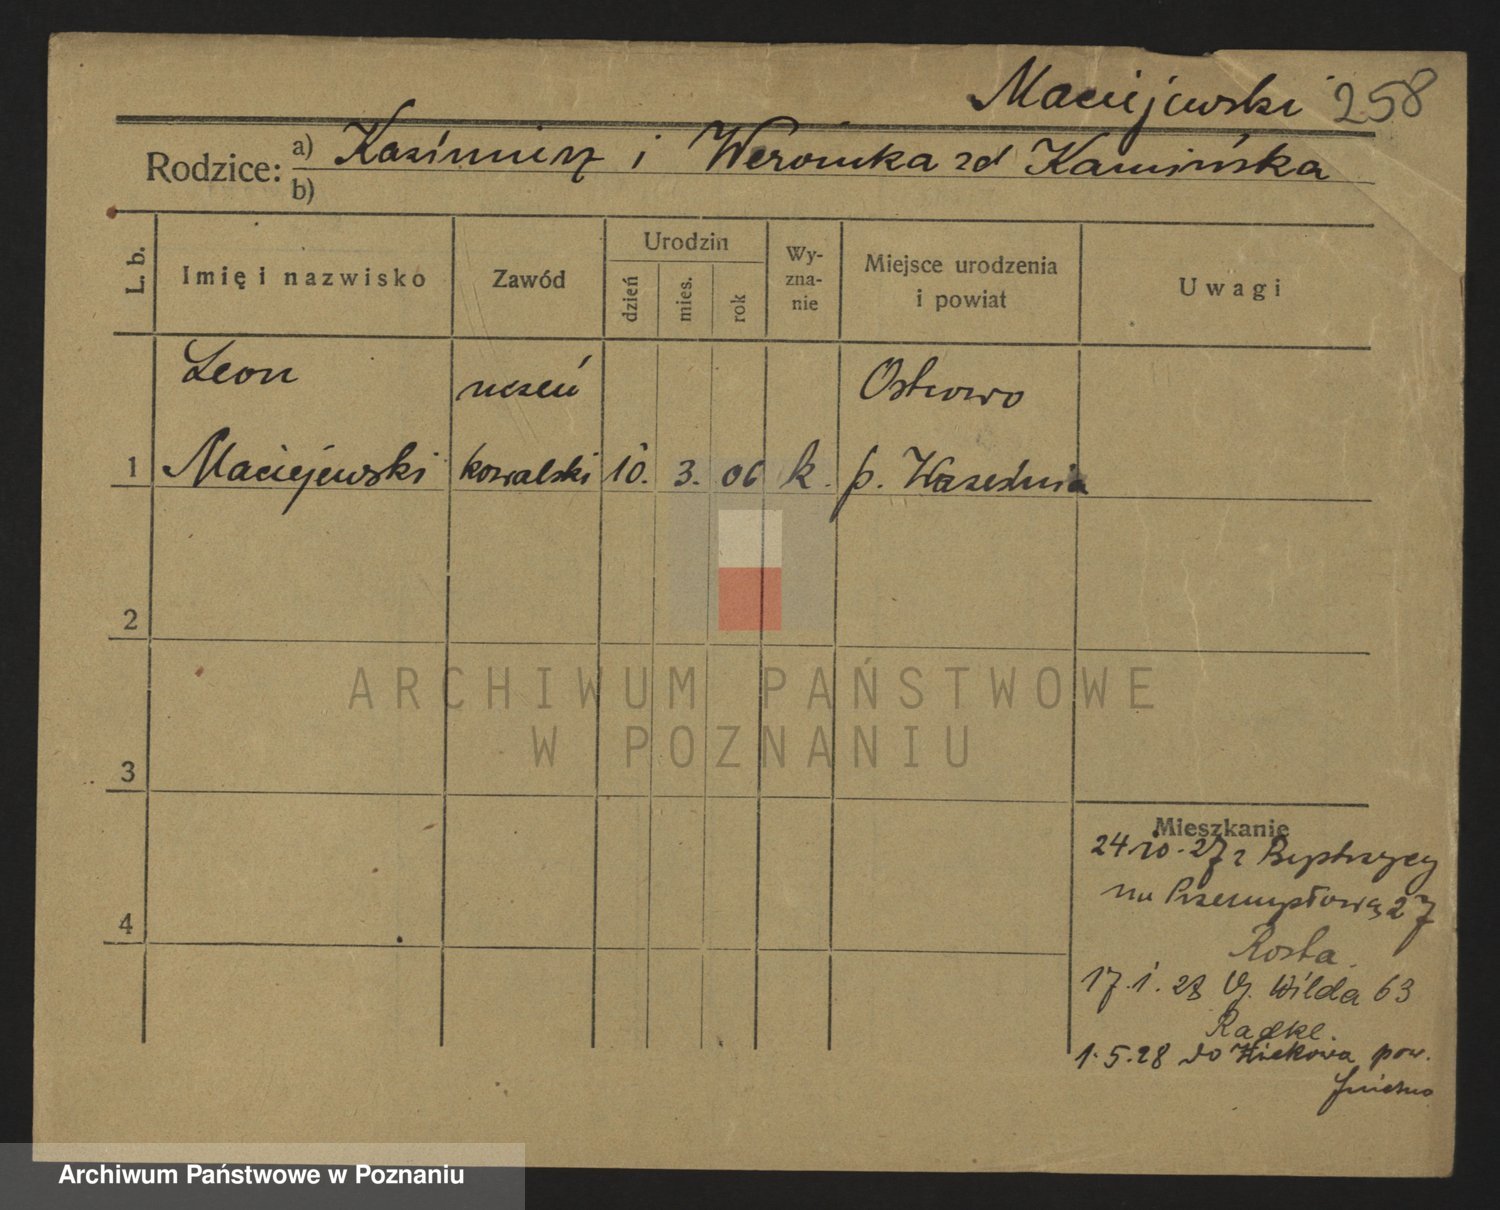 Maciejewski 258
Rodzice: a) Kazimierz i Weronika zd Kamińska
b)
L. b.
Imię i nazwisko
Zawód
Urodzin
dzień
mies.
rok
Wy-
zna-
nie
Miejsce urodzenia
i powiat
Uwagi
Leon uczeń Ostrowo
1 Maciejewski kowalski 10. 3. 06 k. p. Września
2
3
4
Mieszkanie
24.10.27 z Bystrzycy
na Przemysłową 27
17.1.28 G. Wilda 63
Radke.
1.5.28 do pow.
Gniezno
ARCHIWUM PAŃSTWOWE
W POZNANIU
Archiwum Państwowe w Poznaniu